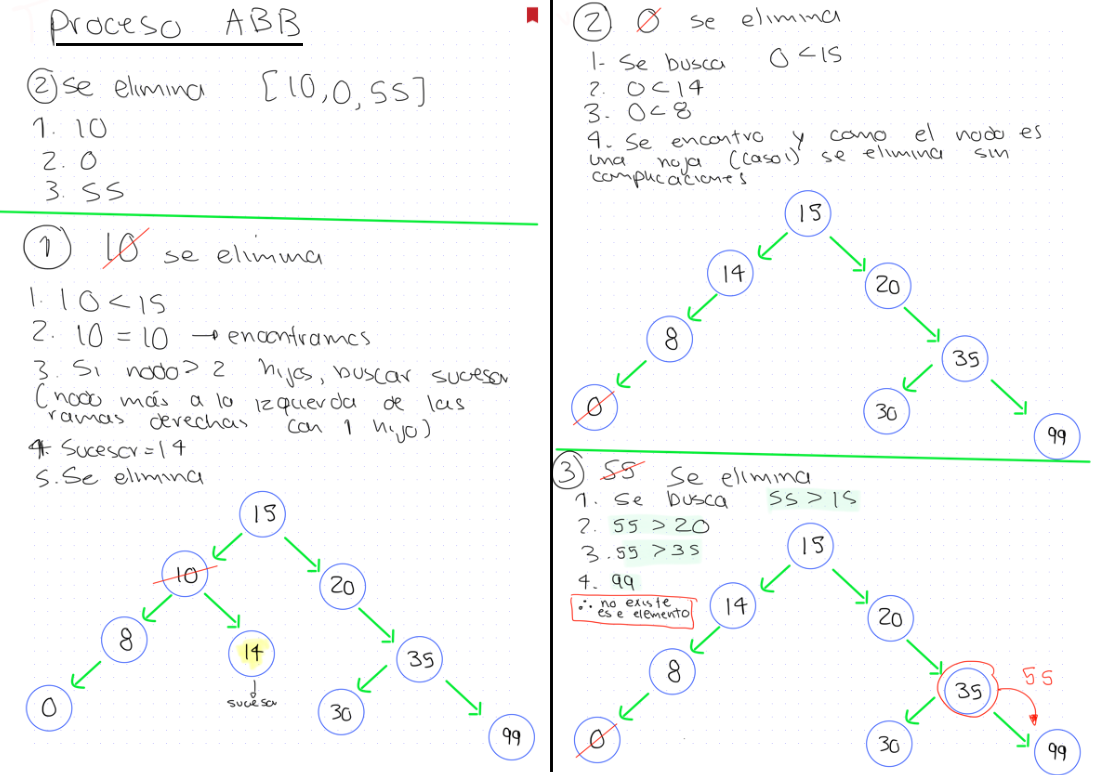 Proceso ABB
② se elimina [10,0,55]
1. 10
2. 0
3. 55
① 10 se elimina
1. 10 < 15
2. 10 = 10 → encontramos
3. Si nodo > 2 hijos, buscar sucesor
(nodo más a la izquerda de las
ramas derechas con 1 hijo)
4. Sucesor = 14
5. Se elimina
15
10
20
8
14
35
sucesor
0
30
99
② 0 se elimina
1- Se busca 0 < 15
2. 0 < 14
3. 0 < 8
4. Se encontro y como el nodo es
una hoja (caso 1) se elimina sin
complicaciones
15
14
20
8
35
0
30
99
③ 55 Se elimina
1. Se busca 55 > 15
2. 55 > 20
3. 55 > 35
4. 99
∴ no existe
ese elemento
15
14
20
8
35
55
0
30
99